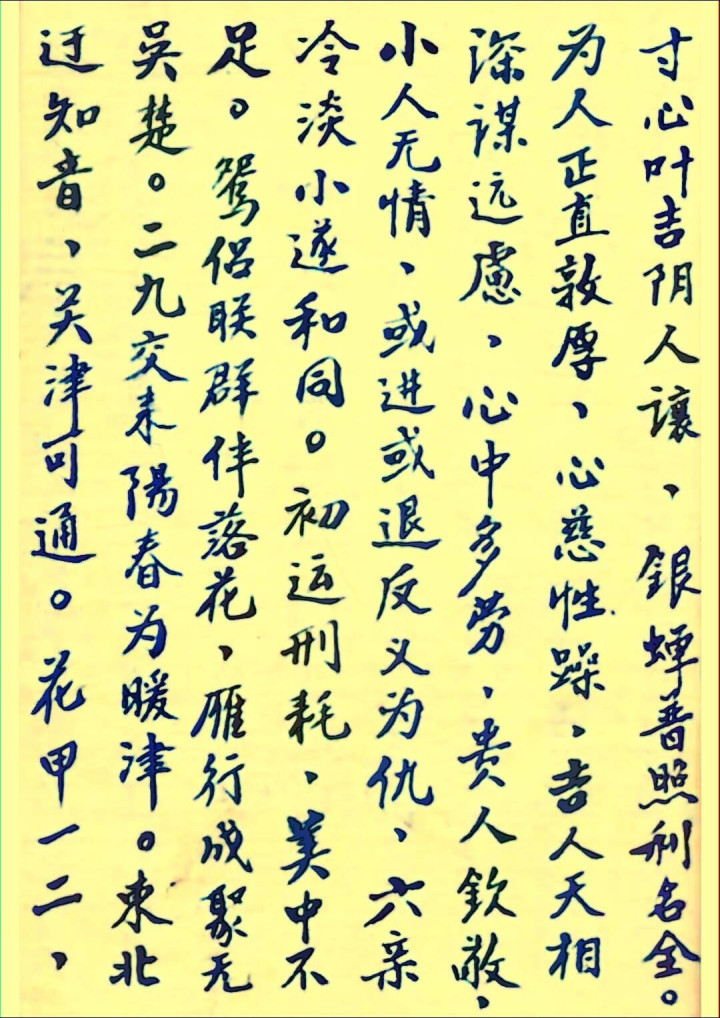 寸心叶吉阴人讓、銀蝉普照利名全。
为人正直敦厚、心慈性躁、吉人天相
深谋远慮、心中多劳、贵人欽敬、
小人无情、或进或退反义为仇、六亲
冷淡小遂和同。初运刑耗、美中不
足。鸳侣联群伴落花、雁行成聚无
吴楚。二九交来陽春为暖津。東北
迂知音、关津可通。花甲一二、